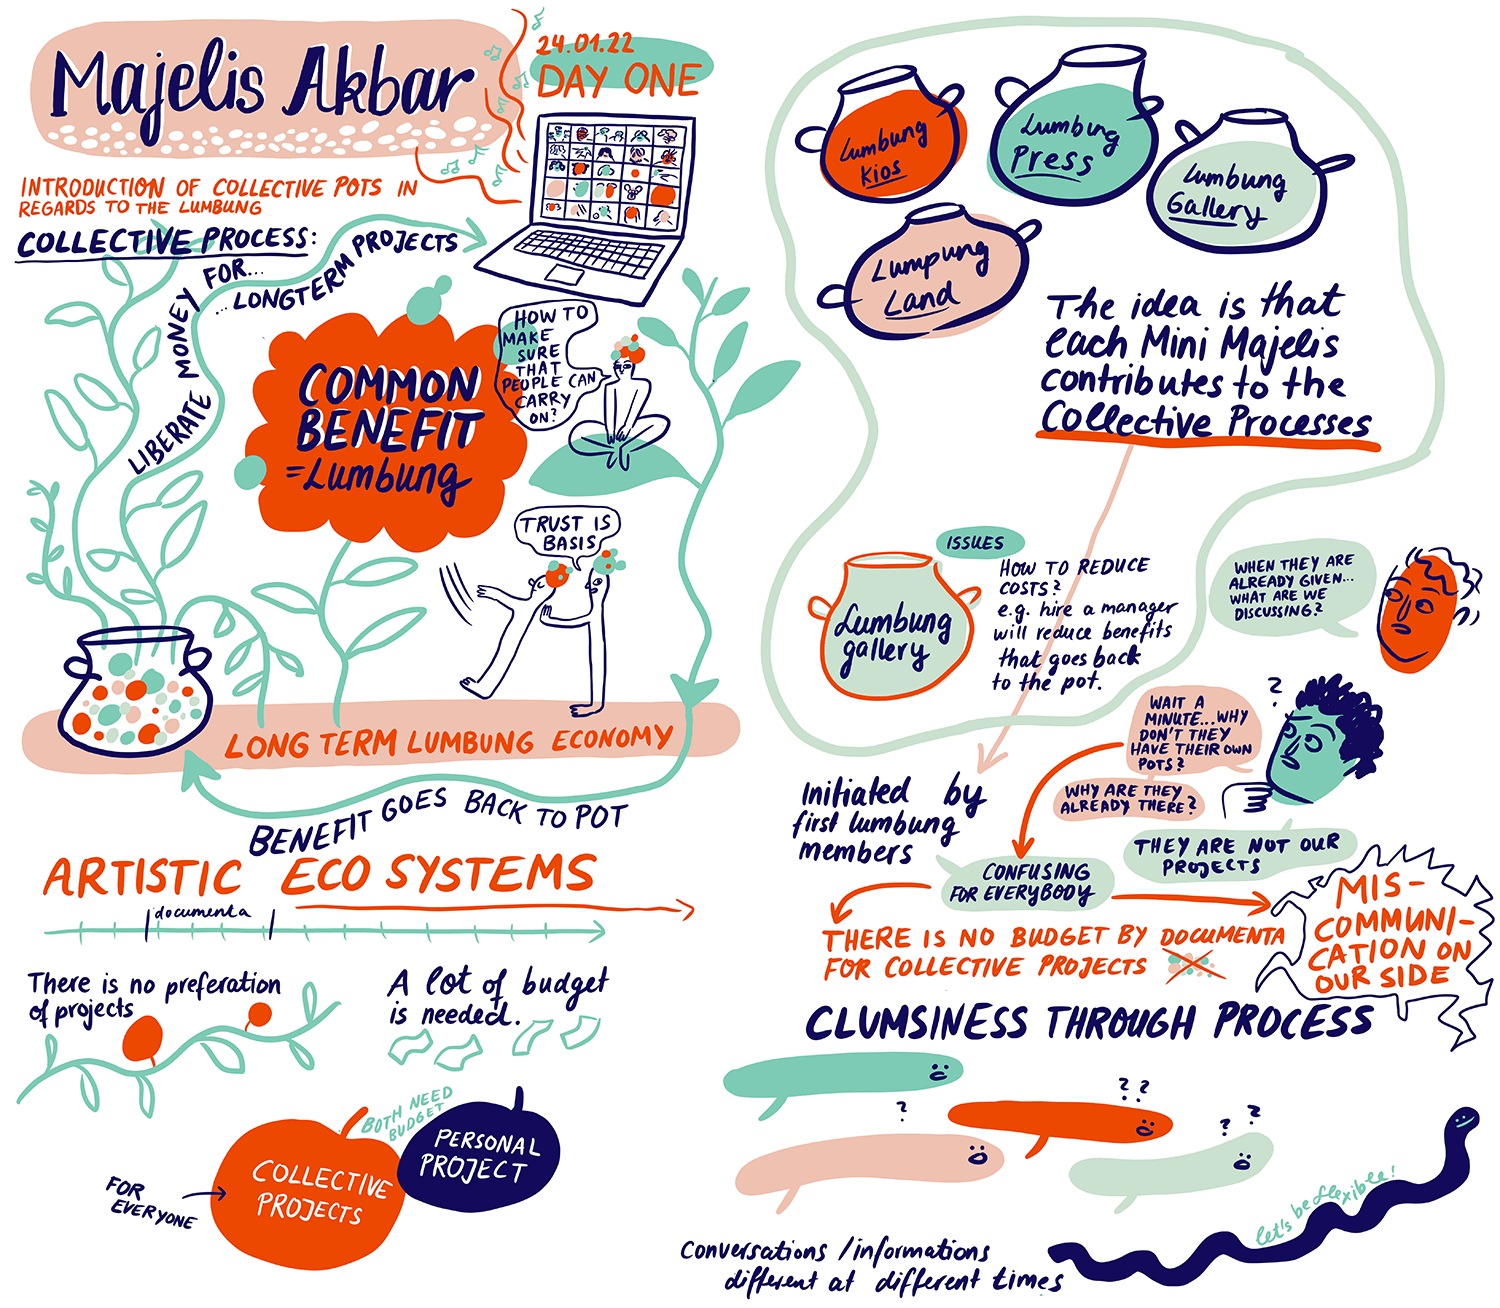 Majelis Akbar
24.01.22
DAY ONE
INTRODUCTION OF COLLECTIVE POTS IN
REGARDS TO THE LUMBUNG
COLLECTIVE PROCESS:
LIBERATE MONEY FOR...
...LONGTERM PROJECTS
COMMON
BENEFIT
=Lumbung
HOW TO
MAKE
SURE
THAT
PEOPLE CAN
CARRY
ON?
TRUST IS
BASIS
LONG TERM LUMBUNG ECONOMY
BENEFIT GOES BACK TO POT
ARTISTIC ECO SYSTEMS
documenta
There is no preferation
of projects
A lot of budget
is needed.
BOTH NEED
BUDGET
PERSONAL
PROJECT
COLLECTIVE
PROJECTS
FOR
EVERYONE
Lumbung
Kios
Lumbung
Press
Lumbung
Gallery
Lumpung
Land
The idea is that
each Mini Majelis
contributes to the
Collective Processes
ISSUES
Lumbung
gallery
HOW TO REDUCE
COSTS?
e.g. hire a manager
will reduce benefits
that goes back
to the pot.
WHEN THEY ARE
ALREADY GIVEN...
WHAT ARE WE
DISCUSSING?
WAIT A
MINUTE...WHY
DON'T THEY
HAVE THEIR OWN
POTS?
?
WHY ARE THEY
ALREADY THERE?
THEY ARE NOT OUR
PROJECTS
Initiated by
first lumbung
members
CONFUSING
FOR EVERYBODY
THERE IS NO BUDGET BY DOCUMENTA
FOR COLLECTIVE PROJECTS
MIS-
COMMUNI-
CATION ON
OUR SIDE
CLUMSINESS THROUGH PROCESS
?
? ?
? ?
let's be flexible!
Conversations /informations
different at different times